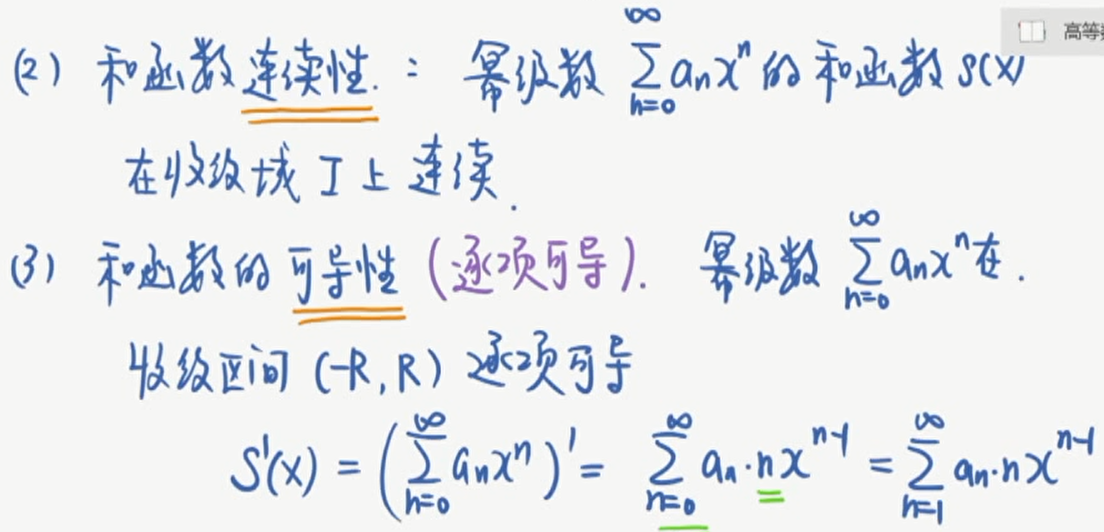 高等
(2) 和函数连续性. : 幂级数 \sum_{n=0}^{\infty} a_n x^n 的和函数 S(x)
在收敛域 I 上连续.
(3) 和函数的可导性 (逐项可导). 幂级数 \sum_{n=0}^{\infty} a_n x^n 在.
收敛区间 (-R, R) 逐项可导
S'(x) = \left( \sum_{n=0}^{\infty} a_n x^n \right)' = \sum_{n=0}^{\infty} a_n \cdot n x^{n-1} = \sum_{n=1}^{\infty} a_n \cdot n x^{n-1}